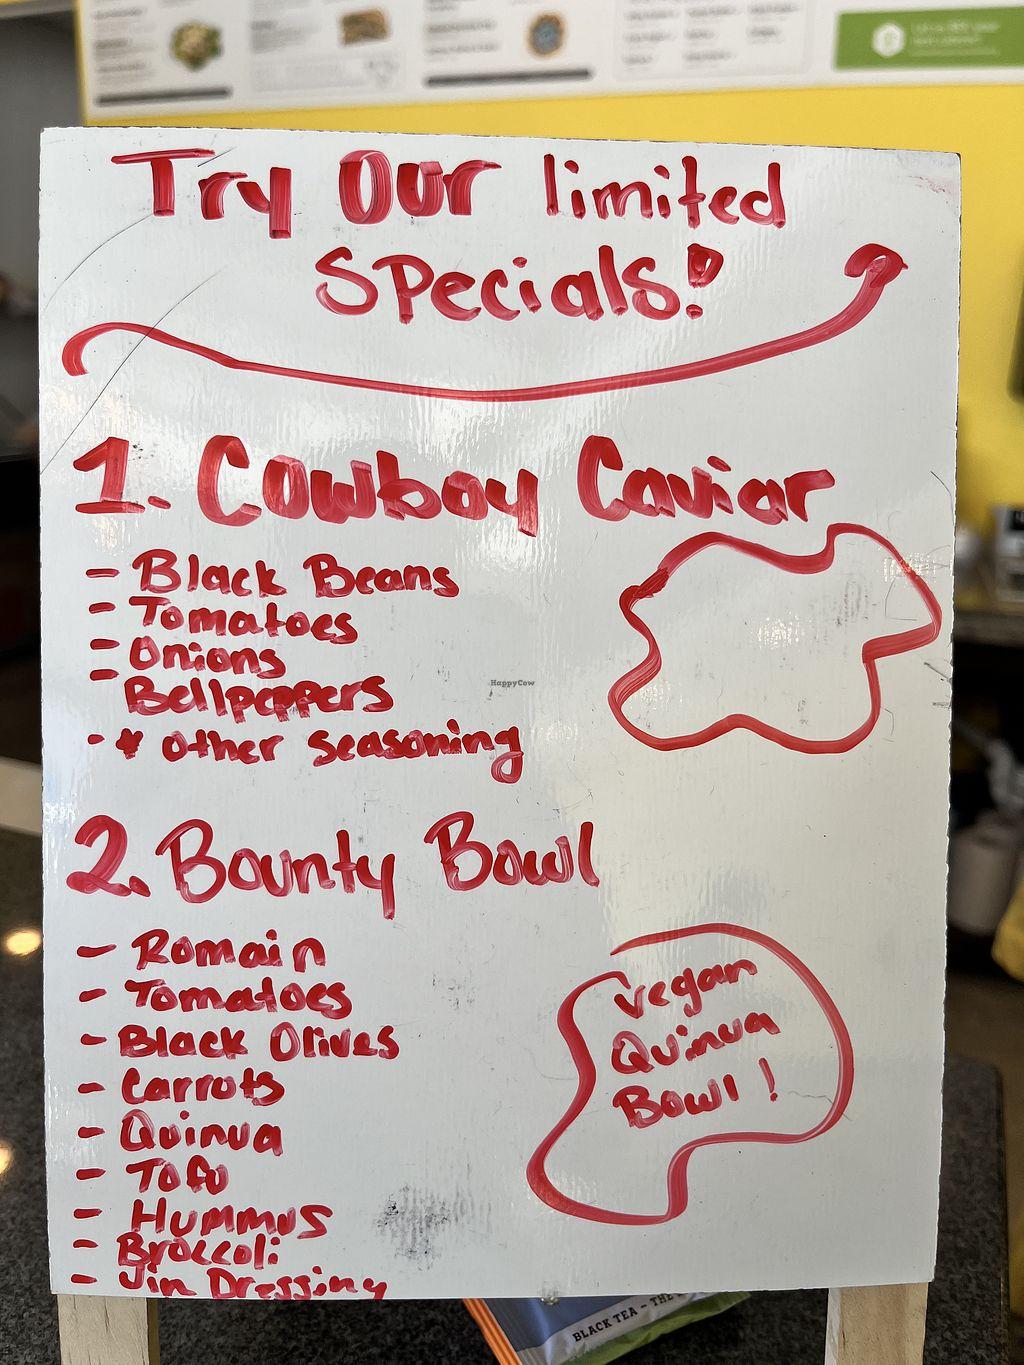 Try Our limited
Specials!
1. Cowboy Caviar
- Black Beans
- Tomatoes
- Onions
- Bellpeppers
- & other seasoning
HappyCow
2. Bounty Bowl
- Romain
- Tomatoes
- Black Olives
- Carrots
- Quinua
- Tofu
- Hummus
- Broccoli
- Jin Dressing
Vegan
Quinua
Bowl!
BLACK TEA - THE